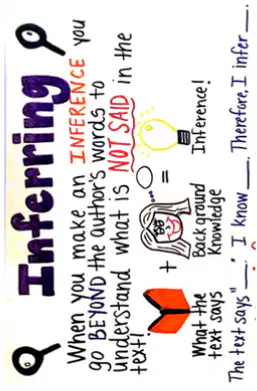 Inferring
When you make an INFERENCE you
go BEYOND the author's words to
understand what is NOT SAID in the
text!
+ =
What the
text says
Background
Knowledge
Inference!
The text says "___." I know ___. Therefore, I infer ___.